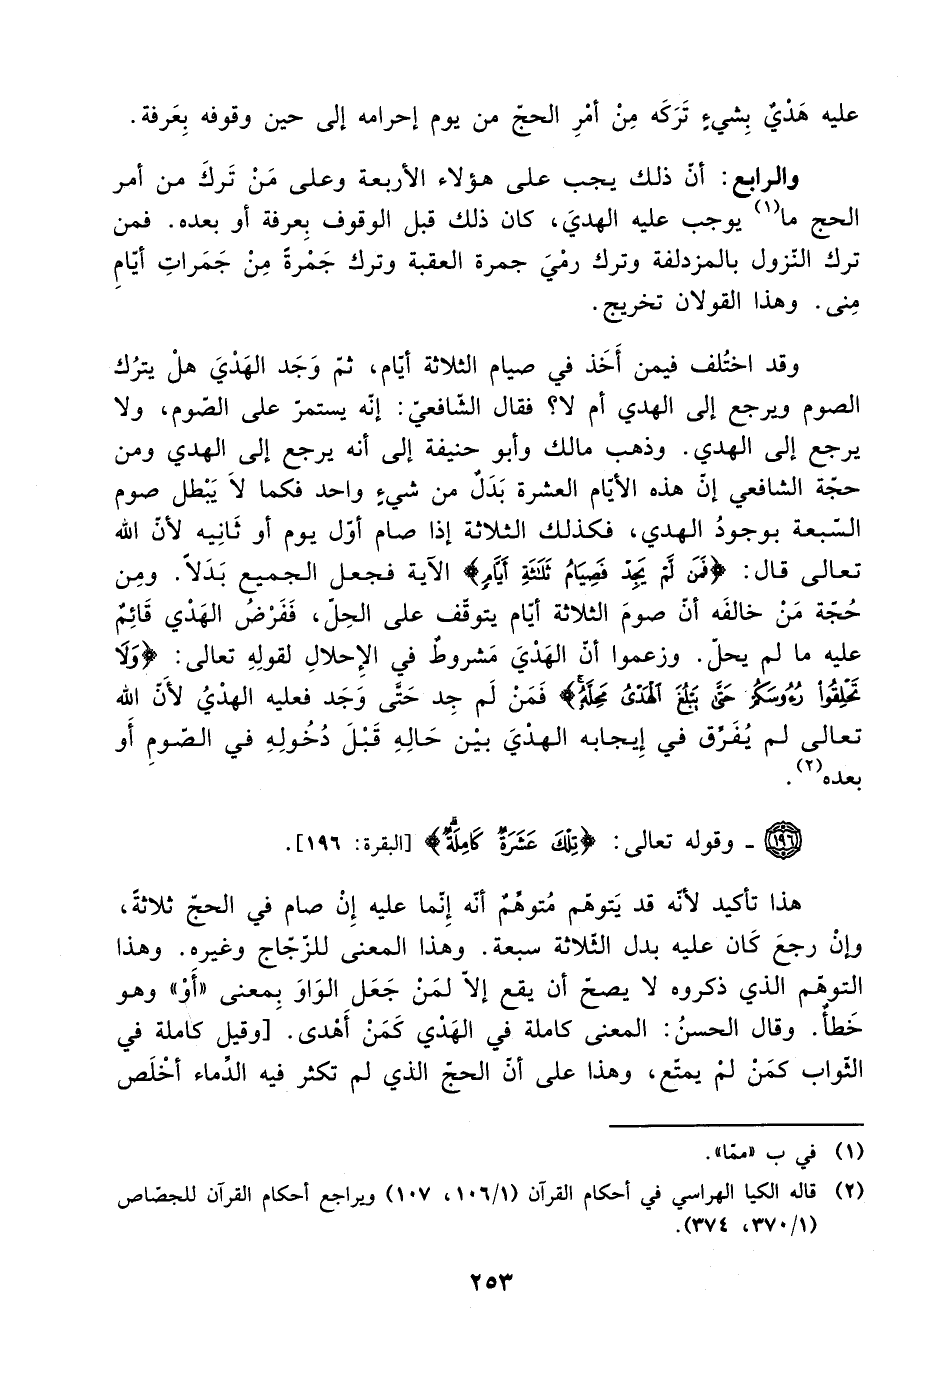 عليه هَدْيٌ بِشيءٍ تَرَكَه مِنْ أمْرِ الحجّ من يوم إحرامه إلى حين وقوفه بِعَرفة.
والرابع: أنّ ذلك يجب على هؤلاء الأربعة وعلى مَنْ تَركَ من أمر
الحج ما(١) يوجب عليه الهديَ، كان ذلك قبل الوقوف بِعرفة أو بعده. فمن
ترك النّزول بالمزدلفة وترك رمْيَ جمرة العقبة وترك جَمْرةً مِنْ جَمَراتِ أيّامِ
مِنى. وهذا القولان تخريج.
وقد اختُلف فيمن أَخَذ في صيام الثلاثة أيّام، ثمّ وَجَد الهَدْيَ هلْ يترُك
الصوم ويرجع إلى الهدي أم لا؟ فقال الشّافعيّ: إنّه يستمرّ على الصّوم، ولا
يرجع إلى الهدي. وذهب مالك وأبو حنيفة إلى أنه يرجع إلى الهدي ومن
حجّة الشافعي إنّ هذه الأيّام العشرة بَدَلٌ من شيءٍ واحد فكما لاَ يَبْطل صوم
السّبعة بوجودُ الهدي، فكذلك الثلاثة إذا صام أوّل يوم أو ثَانِيه لأنّ الله
تعالى قال: ﴿فَمَن لَّمْ يَجِدْ فَصِيَامُ ثَلَٰثَةِ أَيَّامٍ﴾ الآية فجعل الجميع بَدَلاً. ومِن
حُجّة مَنْ خالفَه أنّ صومَ الثلاثة أيّام يتوقّف على الحِلّ، فَفَرْضُ الهَدْي قَائِمٌ
عليه ما لم يحلّ. وزعموا أنّ الهَدْيَ مَشروطٌ في الإحلالِ لقولِهِ تعالى: ﴿وَلَا
تَحْلِقُوا۟ رُءُوسَكُمْ حَتَّىٰ يَبْلُغَ ٱلْهَدْىُ مَحِلَّهُۥ﴾ فَمَنْ لَم جِد حَتَّى وَجَد فعليه الهديْ لأنّ الله
تعالى لم يُفَرِّق في إيجابه الهديَ بيْن حَالِهِ قَبْلَ دُخُولِهِ في الصّومِ أَو
بعده(٢).
(١٩٦) ـ وقوله تعالى: ﴿تِلْكَ عَشَرَةٌ كَامِلَةٌ﴾ [البقرة: ١٩٦].
هذا تأكيد لأنّه قد يَتوهّم مُتوهِّمٌ أنّه إنّما عليه إنْ صام في الحجّ ثلاثةً،
وإنْ رجعَ كَان عليه بدل الثّلاثة سبعة. وهذا المعنى للزّجّاج وغيره. وهذا
التوهّم الذي ذكروه لا يصحّ أن يقع إلاّ لمَنْ جَعَل الوَاوَ بِمعنى «أَوْ» وهو
خَطأٌ. وقال الحسنُ: المعنى كاملة في الهَدْي كَمَنْ أَهْدى. [وقيل كاملة في
الثّواب كمَنْ لمْ يمتّع، وهذا على أنّ الحجّ الذي لم تكثر فيه الدِّماء أخْلَص
(١) في ب «ممّا».
(٢) قاله الكيا الهراسي في أحكام القرآن (١٠٦/١، ١٠٧) ويراجع أحكام القرآن للجصّاص
(٣٧٠/١، ٣٧٤).
٢٥٣